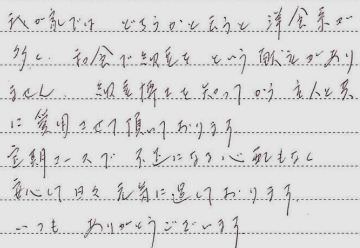 我が家では どちらかと云うと 洋食系が
多く、和食で納豆を という献立があり
ません。納豆樽を知ってから主人と共
に愛用させて頂いております
定期コースで 不足になる心配もなく
安心して日々元気に過しております。
いつも ありがとうございます